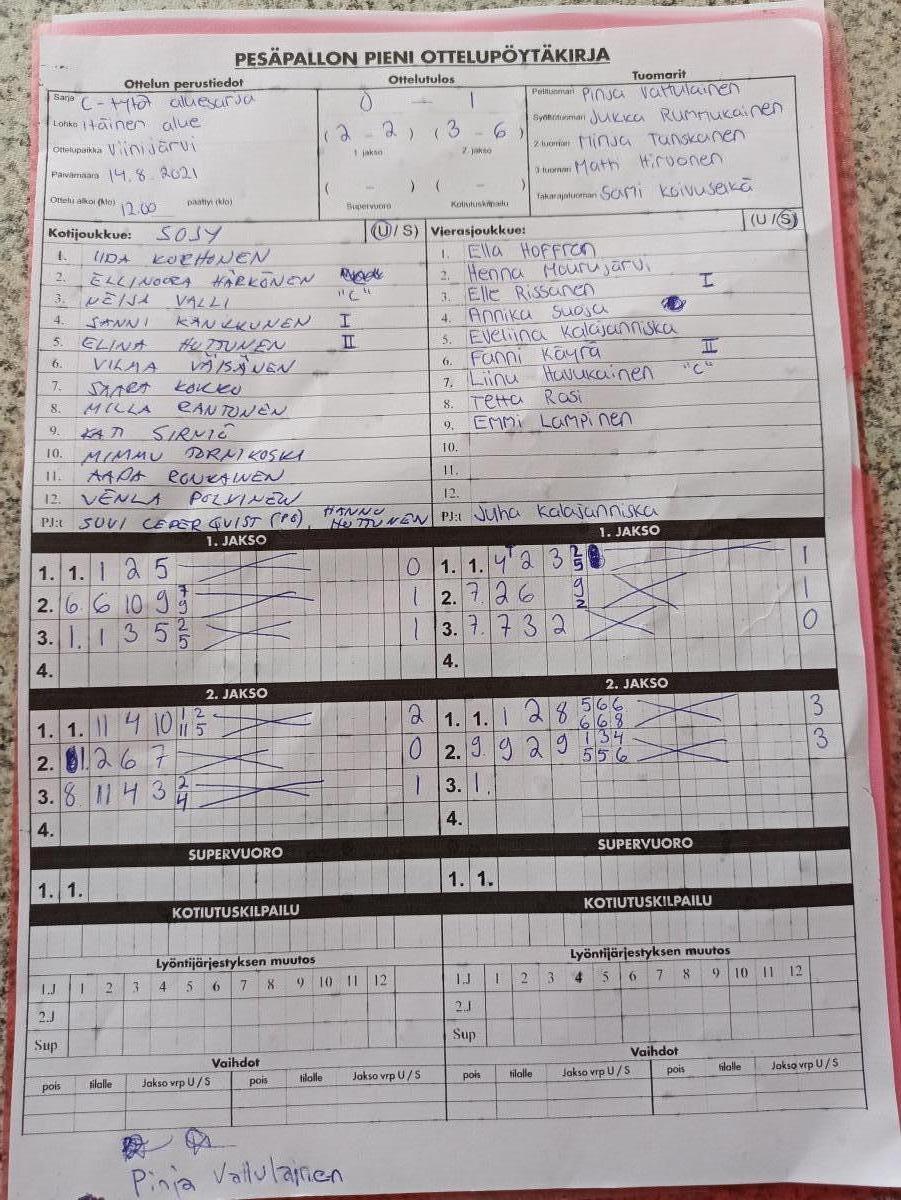 PESÄPALLON PIENI OTTELUPÖYTÄKIRJA
Ottelun perustiedot Ottelutulos Tuomarit
Sarja C-tytöt aluesarja 0 - 1 Pelituomari Pinja Vattulainen
Lohko Itäinen alue (2 - 2) (3 - 6) Syöttötuomari Jukka Rummukainen
1. jakso 2. jakso
Ottelupaikka Viinijärvi 2-tuomari Minja Tanskanen
Päivämäärä 14.8.2021 ( - ) ( - ) 3-tuomari Matti Hirvonen
Ottelu alkoi (klo) 12.00 päättyi (klo) Supervuoro Kotiutuskilpailu Takarajatuomari Sami Koivuselkä
Kotijoukkue: SOJY (U/S) Vierasjoukkue: (U/S)
1. IIDA KORHONEN 1. Ella Hoffrén
2. ELLINOORA HÄRKÖNEN 2. Henna Mourujärvi
3. NEIJA VALLI "C" 3. Elle Rissanen I
4. SANNI KANKKUNEN I 4. Annika Suosa
5. ELINA HUTTUNEN II 5. Eveliina Kalajanniska
6. VILMA VÄISÄNEN 6. Fanni Käyrä II
7. SAARA KOKKO 7. Liinu Havukainen "C"
8. MILLA RANTONEN 8. Tetta Rasi
9. KATI SIRNIÖ 9. Emmi Lampinen
10. MIMMU TORNIKOSKI 10.
11. AADA ROUKAINEN 11.
12. VENLA POLVINEN 12.
PJ:t SUVI CEDERQUIST (PG), HANNU HUTTUNEN PJ:t Juha Kalajanniska
1. JAKSO 1. JAKSO
1. 1. 1 2 5 0 1. 1. 4 2 3 2 5 1
2. 6. 6 10 9 7 9 1 2. 7. 2 6 9 2 1
3. 1. 1 3 5 2 5 1 3. 7. 7 3 2 0
4. 4.
2. JAKSO 2. JAKSO
1. 1. 11 4 10 1 2 11 5 2 1. 1. 1 2 8 5 6 6 6 6 8 3
2. 1. 2 6 7 0 2. 9. 9 2 9 1 3 4 5 5 6 3
3. 8 11 4 3 2 4 1 3. 1.
4. 4.
SUPERVUORO SUPERVUORO
1. 1. 1. 1.
KOTIUTUSKILPAILU KOTIUTUSKILPAILU
Lyöntijärjestyksen muutos Lyöntijärjestyksen muutos
1.J 1 2 3 4 5 6 7 8 9 10 11 12 1.J 1 2 3 4 5 6 7 8 9 10 11 12
2.J 2.J
Sup Sup
Vaihdot Vaihdot
pois tilalle Jakso vrp U / S pois tilalle Jakso vrp U / S pois tilalle Jakso vrp U / S pois tilalle Jakso vrp U / S
Pinja Vattulainen